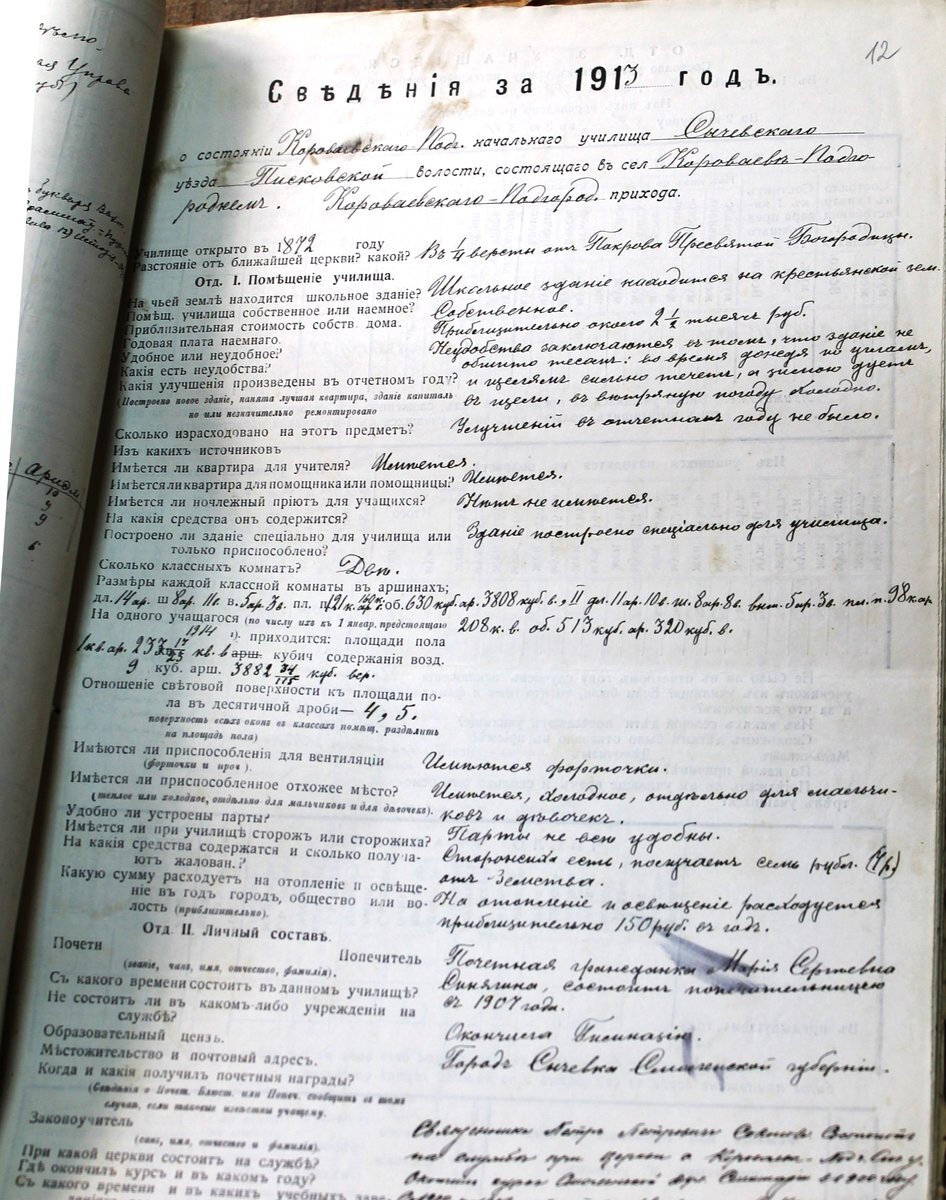 12
Свѣдѣнія за 1913 годъ.
о состояніи Короваевскаго-Подг. начальнаго училища Сычевскаго
уѣзда Писковской волости, состоящаго въ сел Короваевѣ-Подго-
роднемъ. Короваевскаго-Подгород. прихода.
Училище открыто въ 1872 году
Разстояніе отъ ближайшей церкви? какой? Въ 1/4 версты отъ Покрова Пресвятой Богородицы.
Отд. I. Помѣщеніе училища.
На чьей землѣ находится школьное зданіе? Школьное зданіе находится на крестьянской зем.
Помѣщ. училища собственное или наемное? Собственное.
Приблизительная стоимость собств. дома. Приблизительно около 2 1/2 тысячъ руб.
Годовая плата наемнаго.
Удобное или неудобное? Неудобства заключаются въ томъ, что зданіе не
Какія есть неудобства? обшито тесомъ: во время дождя по угламъ,
Какія улучшенія произведены въ отчетномъ году? и щелямъ сильно течетъ, а зимою дуетъ
(Построено новое зданіе, нанята лучшая квартира, зданіе капиталь- въ щели, въ вѣтряную погоду холодно.
но или незначительно ремонтировано
Сколько израсходовано на этотъ предметъ? Улучшеній въ отчетномъ году не было.
Изъ какихъ источниковъ
Имѣется ли квартира для учителя? Имѣется.
Имѣется ли квартира для помощника или помощницы? Имѣется.
Имѣется ли ночлежный пріютъ для учащихся? Нѣтъ не имѣется.
На какія средства онъ содержится?
Построено ли зданіе спеціально для училища или Зданіе построено спеціально для училища.
только приспособлено?
Сколько классныхъ комнатъ? Двѣ.
Размѣры каждой классной комнаты въ аршинахъ;
дл. 14 ар. ш 8 ар. 11 в. в. 5 ар. 3 в. пл. п. 121 к. об. 630 куб. ар. 3808 куб. в., II дл. 11 ар. 10 в. ш. 8 ар. 8 в. выш. 5 ар. 3 в. пл. п. 98 к ар.
На одного учащагося (по числу ихъ къ 1 янв. предстоящаго 208 к. в. об. 513 куб. ар. 320 куб. в.
1914 г). приходитъ: площади пола
1 кв. ар. 233 17/23 кв. в арш. кубич содержанія возд.
9 куб. арш. 3882 34/115 куб. вер.
Отношеніе свѣтовой поверхности къ площади по-
ла въ десятичной дроби— 4,5.
поверхность всѣхъ оконъ въ классахъ помѣщ. раздѣлить
на площадь пола)
Имѣются ли приспособленія для вентиляціи Имѣются форточки.
(форточки и проч).
Имѣется ли приспособленное отхожее мѣсто? Имѣется, холодное, отдѣльно для мальчи-
(теплое или холодное, отдѣльно для мальчиковъ и для дѣвочекъ). ковъ и дѣвочекъ.
Удобно ли устроены парты? Парты не всѣ удобны.
Имѣется ли при училищѣ сторожъ или сторожиха?
На какія средства содержатся и сколько получа- Сторожиха есть, получаетъ семь рубл. (7 р.)
ютъ жалован.? отъ Земства.
Какую сумму расходуетъ на отопленіе и освѣще-
ніе въ годъ городъ, общество или во- На отопленіе и освѣщеніе расходуется
лость (приблизительно). приблизительно 150 руб. въ годъ.
Отд II. Личный составъ.
Почетн Попечитель Почетная гражданка Марія Сергѣевна
(званіе, чинъ, имя, отчество, фамилія). Синягина, состоитъ попечительницею
Съ какого времени состоитъ въ данномъ училищѣ? съ 1907 года.
Не состоитъ ли въ какомъ-либо учрежденіи на
службѣ?
Образовательный цензъ. Окончила Гимназію.
Мѣстожительство и почтовый адресъ. Городъ Сычевка Смоленской губерніи.
Когда и какія получилъ почетныя награды?
(Свѣдѣнія о Почет. Блюст. или Попеч. сообщить въ томъ
случаѣ, если таковыя извѣстны учащему.
Законоучитель Священникъ Петръ Петровичъ
(санъ, имя, отчество и фамилія).
При какой церкви состоитъ на службѣ? на службѣ при церкви с.
Гдѣ окончилъ курсъ и въ какомъ году?
Съ какого времени и въ какихъ учебныхъ заве-